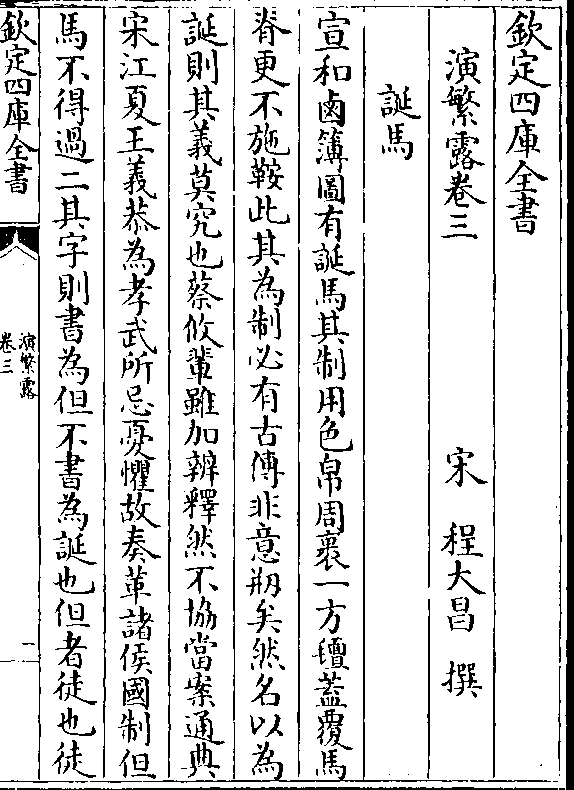 欽定四庫全書
演繁露卷三
宋 程大昌 撰
誕馬
宣和鹵簿圖有誕馬其制用色帛周裹一方氊蓋覆馬
脊更不施鞍此其為制必有古傳非意剏矣然名以為
誕則其義莫究也蔡攸輩雖加辨釋然不協當案通典
宋江夏王義恭為孝武所忌憂懼故奏革諸侯國制但
馬不得過二其字則書為但不書為誕也但者徒也徒
欽定四庫全書
演繁露
卷三
一